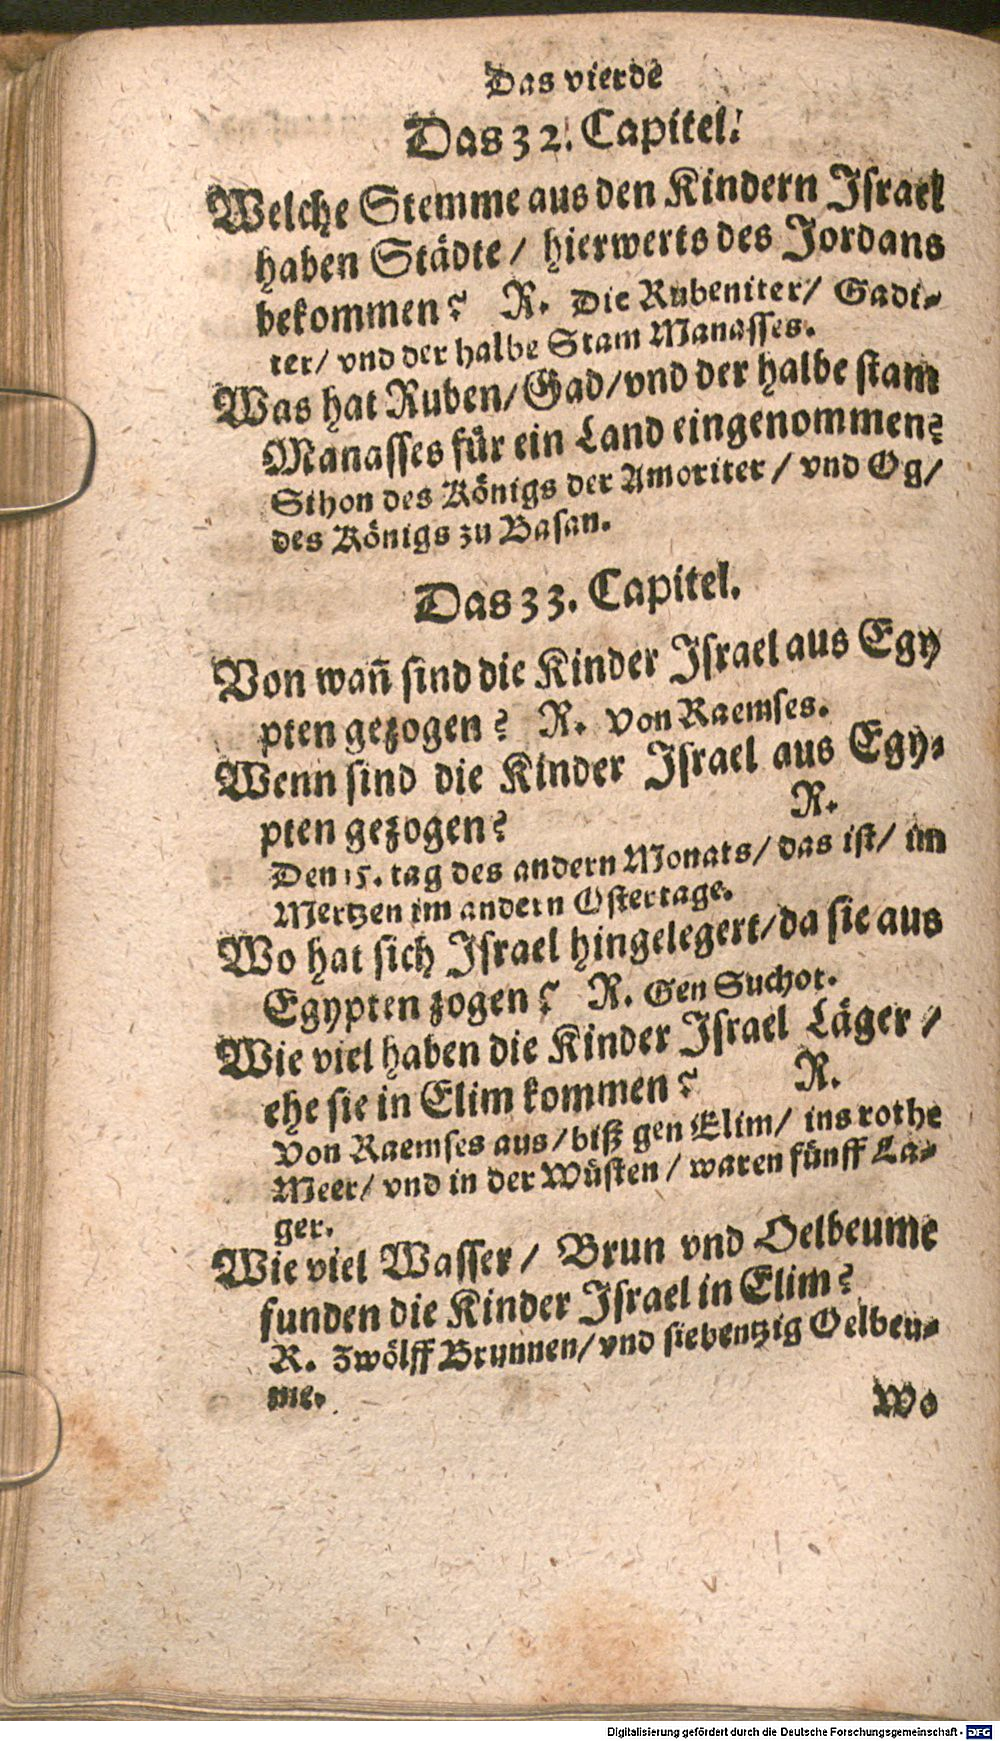 Das vierde
Das 32. Capitel.
Welche Stemme aus den Kindern Israel
haben Städte / hierwerts des Jordans
bekommen? R. Die Rubeniter/ Gadi-
ter/ vnd der halbe Stam Manasses.
Was hat Ruben/Gad/vnd der halbe stam
Manasses für ein Land eingenommen?
Sihon des Königs der Amoriter / vnd Og/
des Königs zu Basan.
Das 33. Capitel.
Von wañ sind die Kinder Israel aus Egy
pten gezogen? R. Von Raemses.
Wenn sind die Kinder Israel aus Egy-
pten gezogen? R.
Den 15. tag des andern Monats/ das ist/ im
Mertzen im andern Ostertage.
Wo hat sich Israel hingelegert/da sie aus
Egypten zogen? R. Gen Suchot.
Wie viel haben die Kinder Israel Läger /
ehe sie in Elim kommen? R.
Von Raemses aus/biß gen Elim/ ins rothe
Meer/ vnd in der Wüsten / waren fünff La-
ger.
Wie viel Wasser/ Brun vnd Oelbeume
funden die Kinder Israel in Elim?
R. Zwölff Brunnen/vnd siebentzig Oelbeu-
me.
Wo
Digitalisierung gefördert durch die Deutsche Forschungsgemeinschaft - DFG